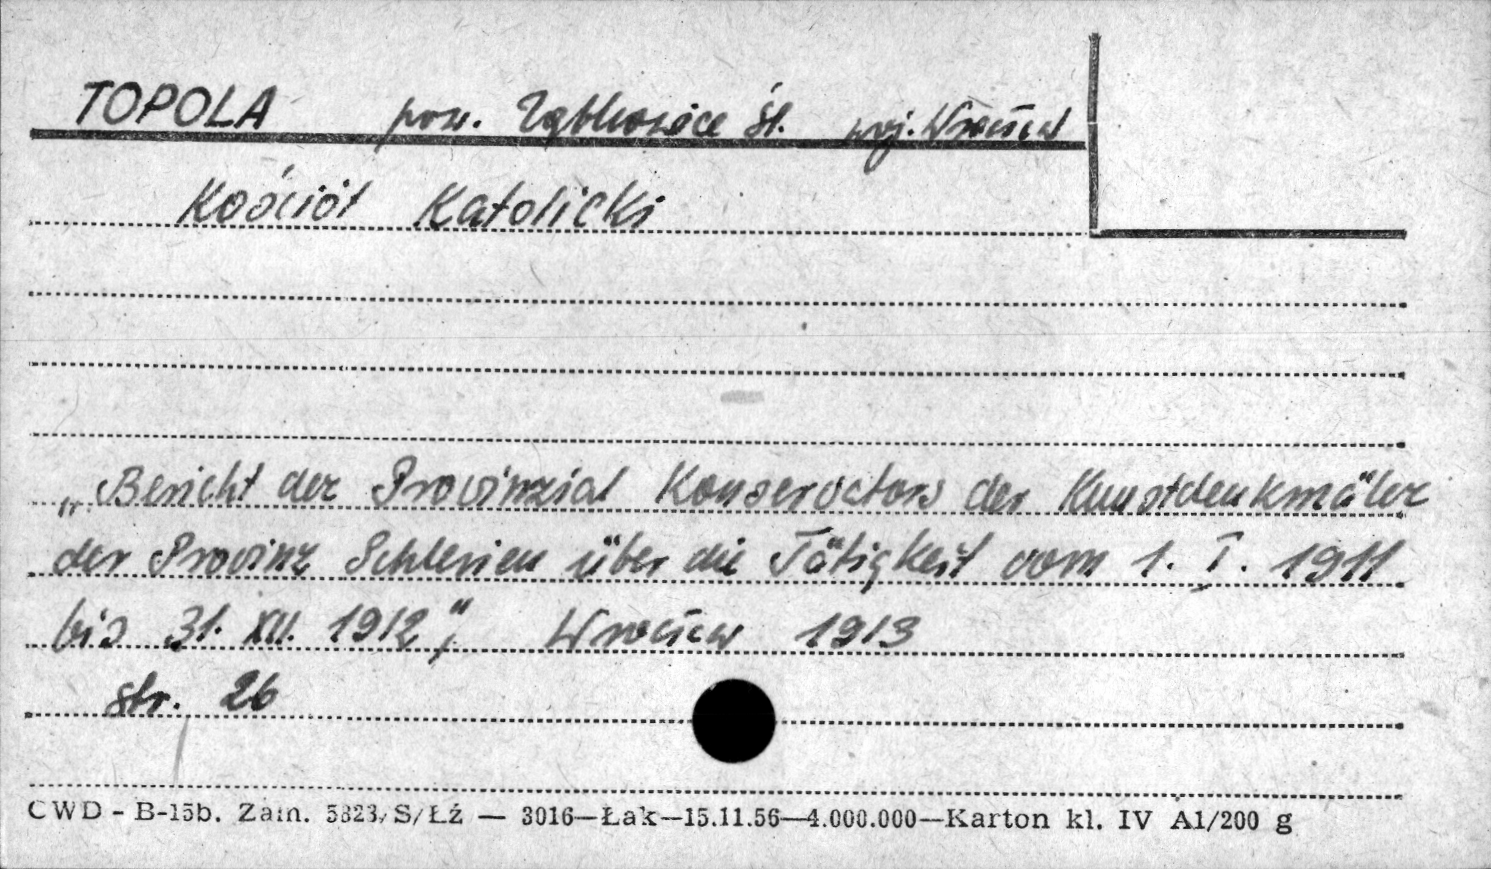 TOPOLA pow. Ząbkowice Śl. woj. Wrocław
Kościół Katolicki
„Bericht der Provinzial Konservators der Kunstdenkmäler
der Provinz Schlesien über die Tätigkeit vom 1. I. 1911
bis 31. XII. 1912", Wrocław 1913
str. 26
CWD - B-15b. Zam. 5823/S/Łź — 3016—Łak—15.11.56—4.000.000—Karton kl. IV A1/200 g